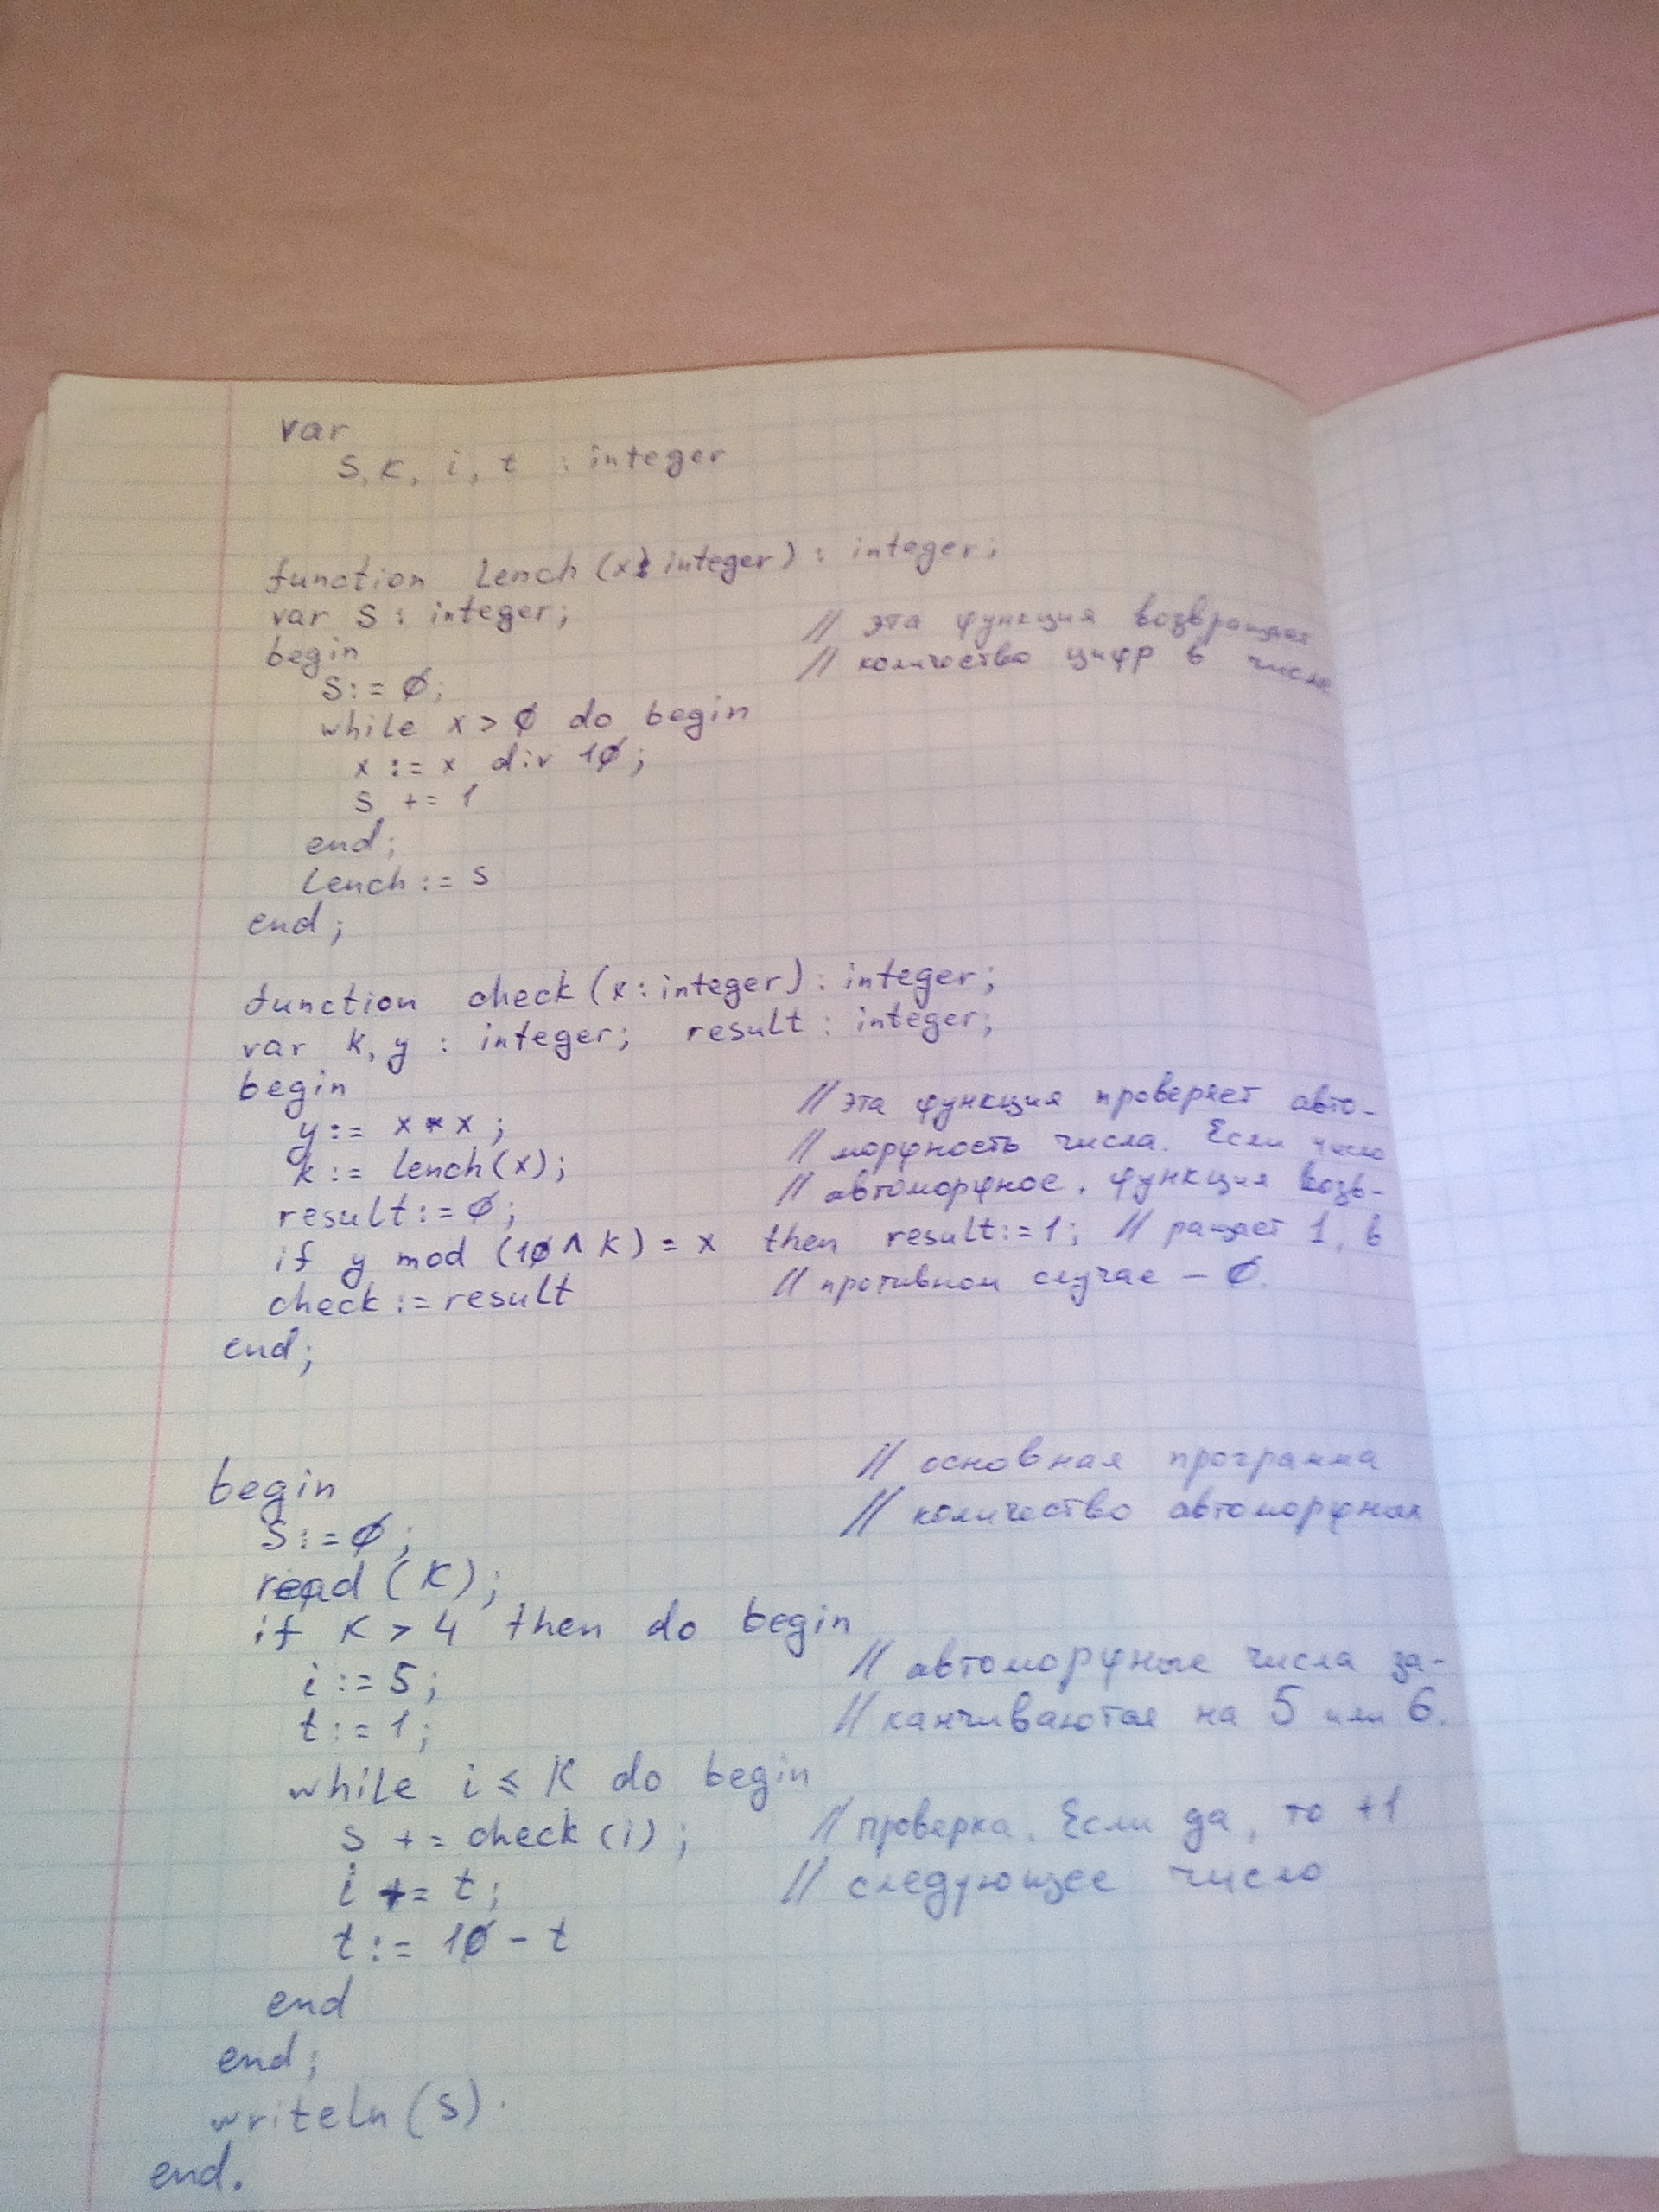 var
s, k, i, t : integer
function lench (x: integer) : integer;
var s : integer; // эта функция возвращая
begin // количество цифр в числе
s := 0;
while x > 0 do begin
x := x div 10;
s += 1
end;
lench := s
end;
function check (x : integer) : integer;
var k, y : integer; result : integer;
begin // эта функция проверяет авто-
y := x * x ; // морфность числа. Если число
k := lench (x); // автоморфное, функция возв-
result := 0;
if y mod (10 ^ k) = x then result := 1; // ращает 1, в
check := result // противном случае – 0.
end;
begin // основная программа
s := 0; // количество автоморфных
read (k);
if k > 4 then do begin
i := 5; // автоморфные числа за-
t := 1; // канчиваются на 5 или 6.
while i ≤ k do begin
s += check (i) ; // проверка. Если да, то +1
i += t; // следующее число
t := 10 - t
end
end;
writeln (s)
end.